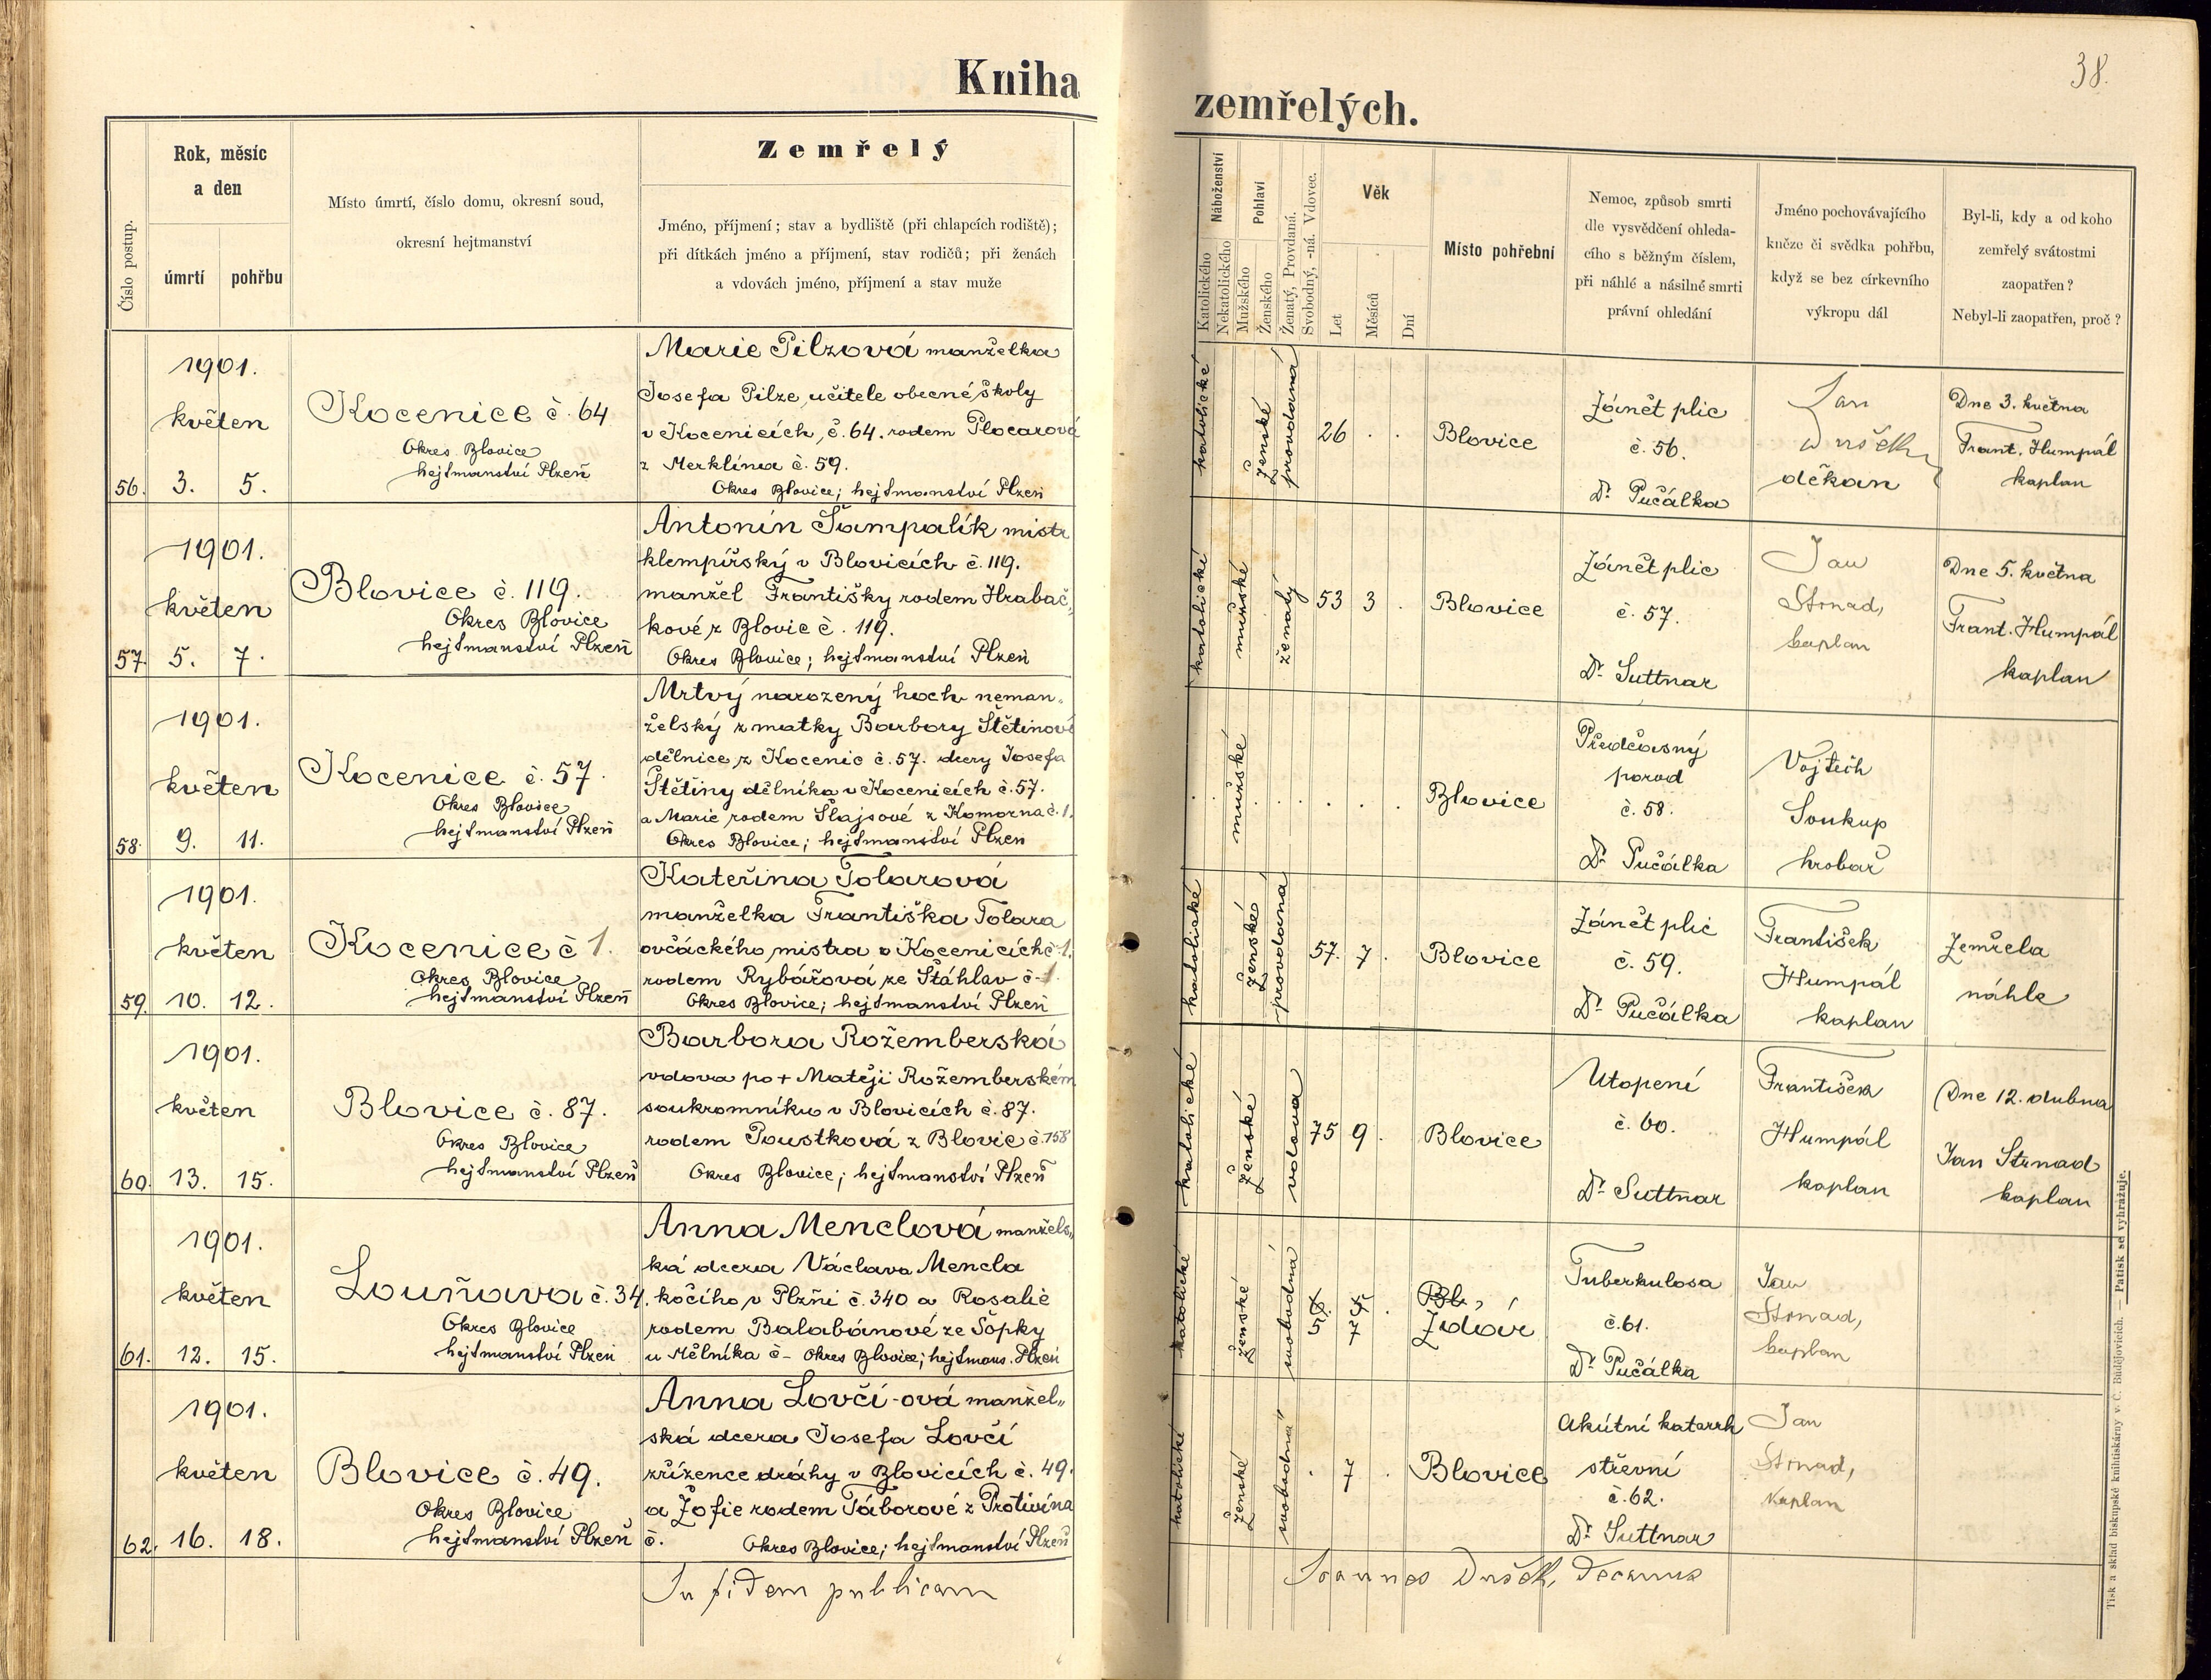 Kniha
zemřelých.
38.
Číslo postup.
Rok, měsíc
a den
úmrtí
pohřbu
Místo úmrtí, číslo domu, okresní soud,
okresní hejtmanství
Zemřelý
Jméno, příjmení; stav a bydliště (při chlapcích rodiště);
při dítkách jméno a příjmení, stav rodičů; při ženách
a vdovách jméno, příjmení a stav muže
Náboženství
Katolického
Nekatolického
Pohlaví
Mužského
Ženského
Ženatý, Provdaná.
Svobodný, -ná. Vdovec.
Věk
Let
Měsíců
Dní
Místo pohřební
Nemoc, způsob smrti
dle vysvědčení ohleda-
cího s běžným číslem,
při náhlé a násilné smrti
právní ohledání
Jméno pochovávajícího
kněze či svědka pohřbu,
když se bez církevního
výkropu dál
Byl-li, kdy a od koho
zemřelý svátostmi
zaopatřen?
Nebyl-li zaopatřen, proč?
56.
1901.
květen
3. 5.
Kocenice č. 64
Okres Blovice
hejtmanství Plzeň
Marie Pilzová manželka
Josefa Pilze, učitele obecné školy
v Kocenicích, č. 64. rodem Plocarová
z Merklína č. 59.
Okres Blovice; hejtmanství Plzeň
katolické
ženské
provdaná
26 . .
Blovice
Zánět plic
č. 56.
Dr. Pučálka
Jan
Dušek
děkan
Dne 3. května
Frant. Humpál
kaplan
57.
1901.
květen
5. 7.
Blovice č. 119.
Okres Blovice
hejtmanství Plzeň
Antonín Šampalík mistr
klempířský v Blovicích č. 119.
manžel Františky rodem Hrabač-
kové z Blovic č. 119.
Okres Blovice; hejtmanství Plzeň
katolické
mužské
ženatý
53 3 .
Blovice
Zánět plic
č. 57.
Dr. Suttnar
Jan
Strnad,
kaplan
Dne 5. května
Frant. Humpál
kaplan
58.
1901.
květen
9. 11.
Kocenice č. 57.
Okres Blovice
hejtmanství Plzeň
Mrtvý narozený hoch neman-
želský z matky Barbory Štětinové
dělnice z Kocenic č. 57. dcery Josefa
Štětiny dělníka v Kocenicích č. 57.
a Marie rodem Šlajsové z Komorna č. 1.
Okres Blovice; hejtmanství Plzeň
mužské
Blovice
Předčasný
porod
č. 58.
Dr. Pučálka
Vojtěch
Soukup
hrobař
59.
1901.
květen
10. 12.
Kocenice č 1.
Okres Blovice
hejtmanství Plzeň
Kateřina Tolarová
manželka Františka Tolara
ovčáckého mistra v Kocenicích č. 1.
rodem Rybářová ze Štáhlav č-1.
Okres Blovice; hejtmanství Plzeň
katolické
ženské
provdaná
57. 7 .
Blovice
Zánět plic
č. 59.
Dr. Pučálka
František
Humpál
kaplan
Zemřela
náhle
60.
1901.
květen
13. 15.
Blovice č. 87.
Okres Blovice
hejtmanství Plzeň
Barbora Rožemberská
vdova po + Matěji Rožemberském
soukromníku v Blovicích č. 87.
rodem Poustková z Blovic č. 158
Okres Blovice; hejtmanství Plzeň
katolické
ženské
vdova
75 9 .
Blovice
Utopení
č. 60.
Dr. Suttnar
František
Humpál
kaplan
Dne 12. dubna
Jan Strnad
kaplan
61.
1901.
květen
12. 15.
Louňava č. 34.
Okres Blovice
hejtmanství Plzeň
Anna Menclová manžels-
ká dcera Václava Mencla
kočího v Plzni č. 340 a Rosalie
rodem Balabánové ze Šopky
u Mělníka č- Okres Blovice; hejtmans. Plzeň
katolické
ženské
svobodná
5 7 .
Bl,
Ždár
Tuberkulosa
č. 61.
Dr. Pučálka
Jan
Strnad,
kaplan
62.
1901.
květen
16. 18.
Blovice č. 49.
Okres Blovice
hejtmanství Plzeň
Anna Lovčí-ová manžel-
ská dcera Josefa Lovčí
zřízence dráhy v Blovicích č. 49.
a Žofie rodem Táborové z Protivína
č. Okres Blovice; hejtmanství Plzeň
katolické
ženské
svobodná
. 7 .
Blovice
Akútní katarrh
střevní
č. 62.
Dr. Suttnar
Jan
Strnad,
kaplan
In fidem publicam
Joannes Dušek, Decanus
Tisk a sklad biskupské knihtiskárny v Č. Budějovicích. — Patisk se vyhražuje.